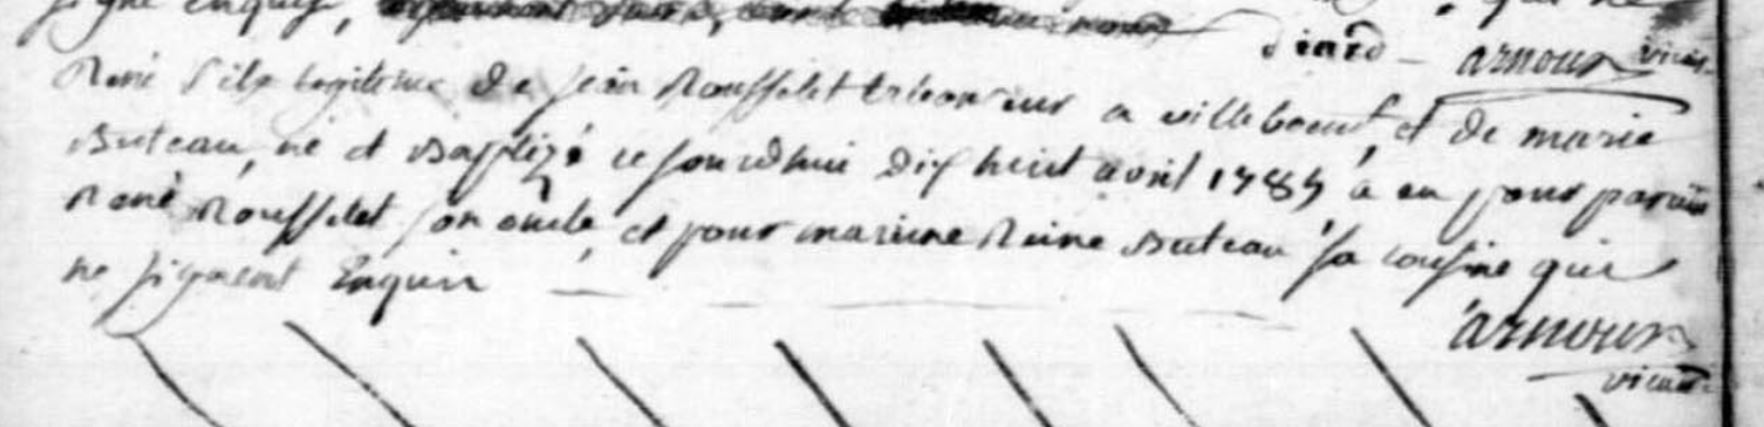 signé enquis,
diard - arnoux vicai.
René fils legitime de jean Rousselet tricoteur a villeboeuf, et de marie
Buteau, né et Baptizé ce jourdhui dix huit avril 1785 a eu pour parain
René Rousselet son oncle, et pour maraine Reine Buteau sa cousine qui
ne signent Enquis
arnoux
vicaire